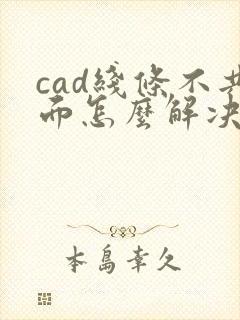 cad綫條不共
而怎麽解决
本島幸久